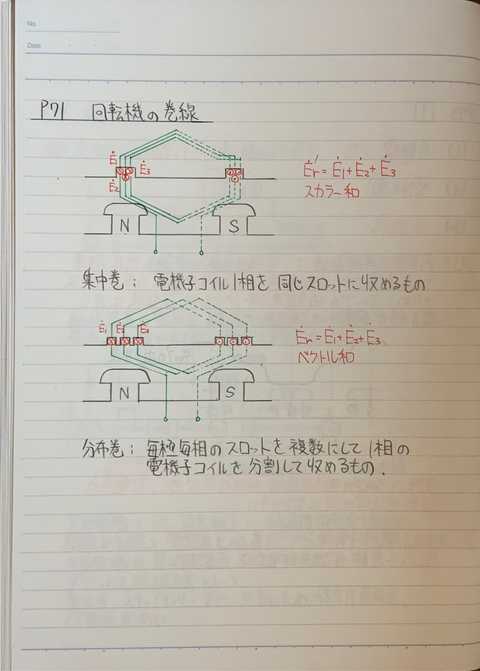 No.
Date
P71 回転機の巻線
Ė₁
Ė₃
Ė₂
Ėr' = Ė₁ + Ė₂ + Ė₃
スカラー和
N S
集中巻 ; 電機子コイル1相を 同じスロットに収めるもの
Ė₁ Ė₂ Ė₃
Ėr = Ė₁ + Ė₂ + Ė₃
ベクトル和
N S
分布巻 ; 毎極毎相のスロットを複数にして1相の
電機子コイルを分割して収めるもの.